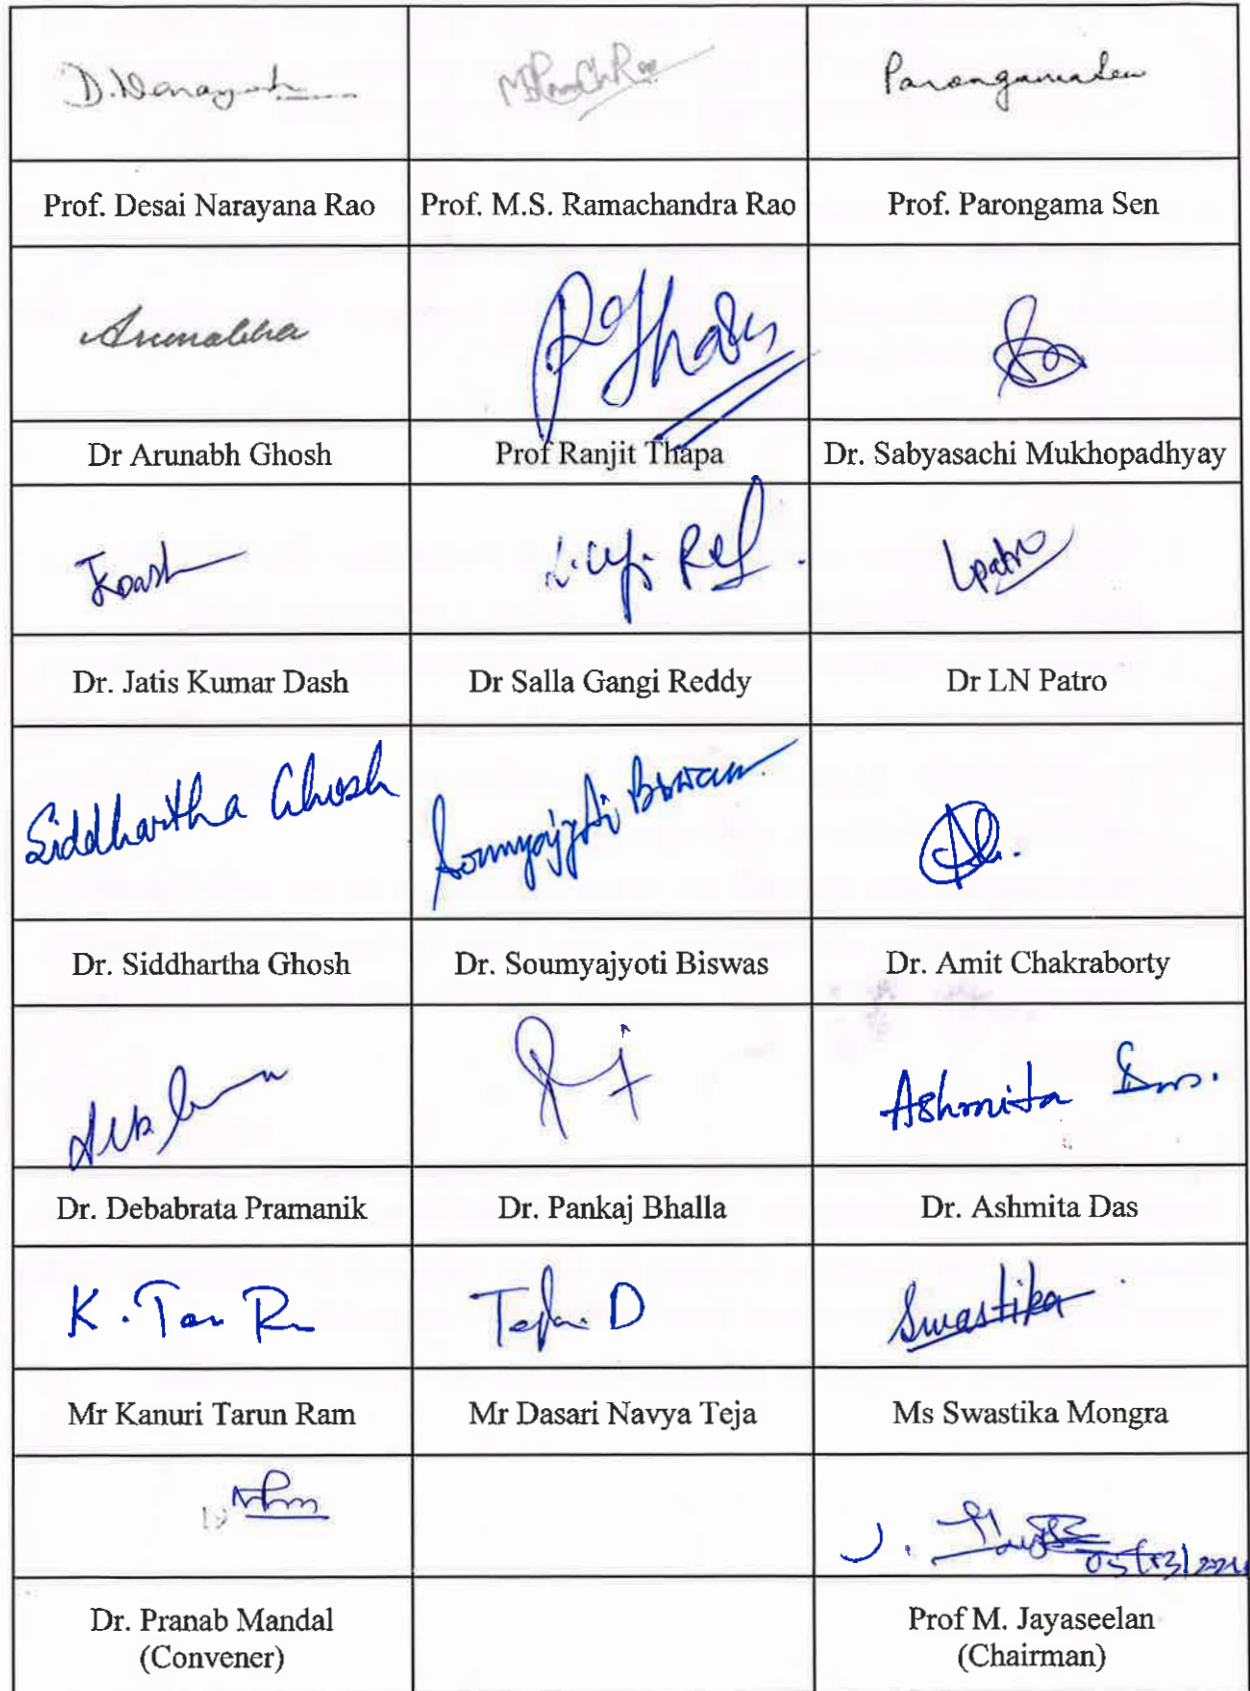 D. Narayana
Parongama Sen
Prof. Desai Narayana Rao
Prof. M.S. Ramachandra Rao
Prof. Parongama Sen
Arunabha
Dr Arunabh Ghosh
Prof Ranjit Thapa
Dr. Sabyasachi Mukhopadhyay
JDash
Lpatro
Dr. Jatis Kumar Dash
Dr Salla Gangi Reddy
Dr LN Patro
Siddhartha Ghosh
Soumyajyoti Biswas
Dr. Siddhartha Ghosh
Dr. Soumyajyoti Biswas
Dr. Amit Chakraborty
Ashmita Das.
Dr. Debabrata Pramanik
Dr. Pankaj Bhalla
Dr. Ashmita Das
K. Tarun R
Teja D
Swastika
Mr Kanuri Tarun Ram
Mr Dasari Navya Teja
Ms Swastika Mongra
Dr. Pranab Mandal
(Convener)
Prof M. Jayaseelan
(Chairman)